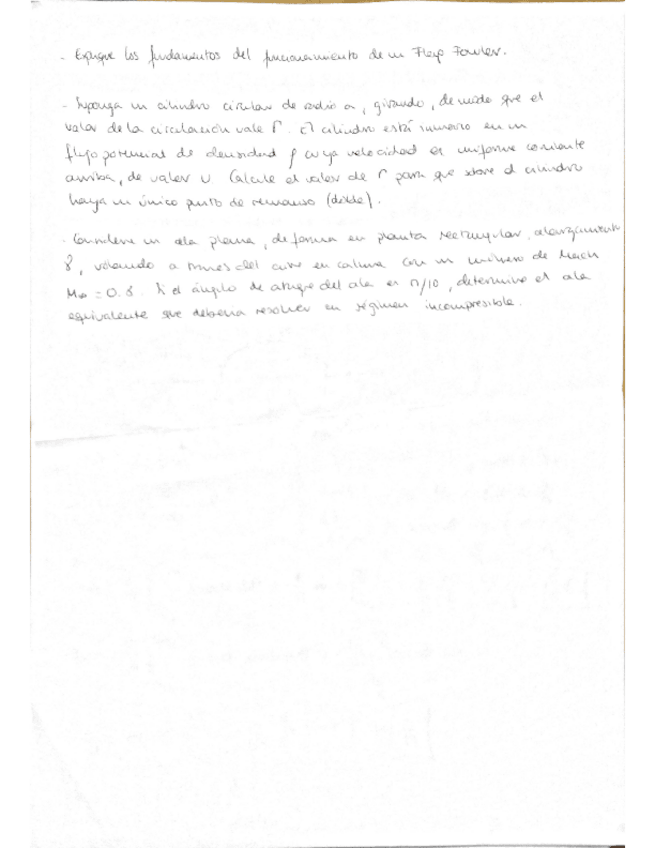 - Explique los fundamentos del funcionamiento de un Flap Fowler.
- Suponga un cilindro circular de radio a, girando, de modo que el
valor de la circulación vale Γ. El cilindro está inmerso en un
flujo potencial de densidad ρ cuya velocidad es uniforme corriente
arriba, de valor U. Calcule el valor de Γ para que sobre el cilindro
haya un único punto de remanso (doble).
- Considere un ala plana, de forma en planta rectangular, alargamiento
8, volando a través del aire en calma con un número de Mach
M∞ = 0.8. Si el ángulo de ataque del ala es π/10, determine el ala
equivalente que debería resolver en régimen incompresible.